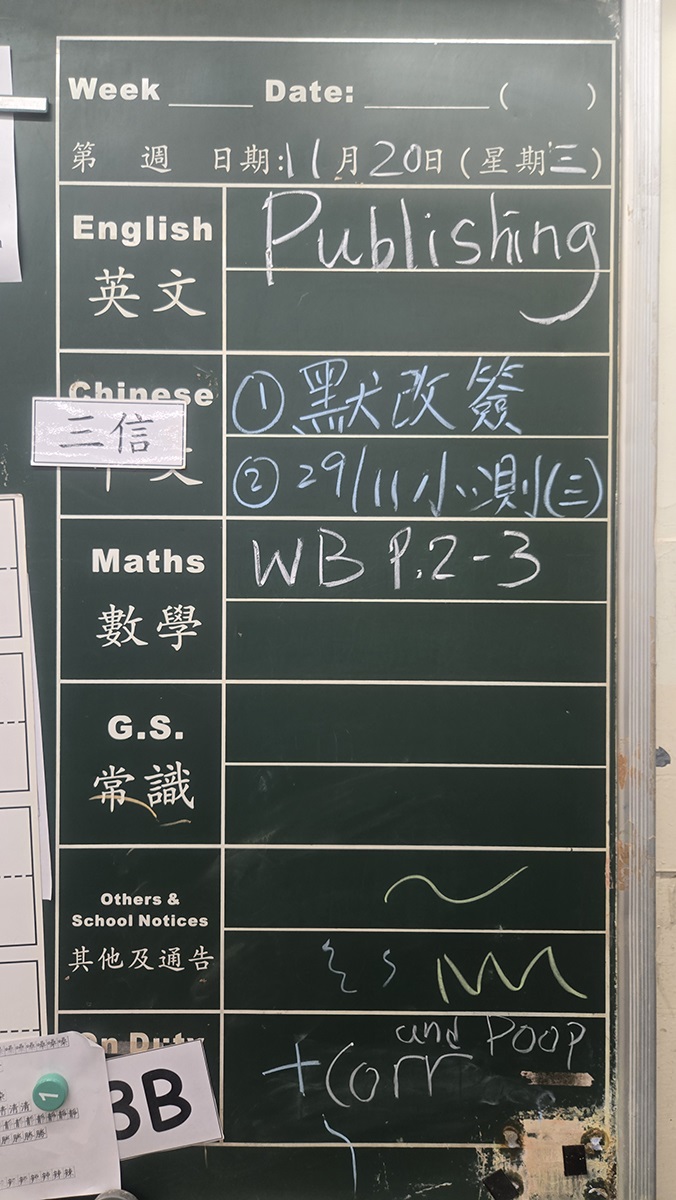 Week ______ Date: ____________ (      )
第 週 日期:11月20日(星期三)
English
英文
Publishing
Chinese
①默改簽
三信
②29/11小測(三)
Maths
數學
WB P.2-3
G.S.
常識
Others &
School Notices
其他及通告
On Duty
and Poop
+Corr
3B
1